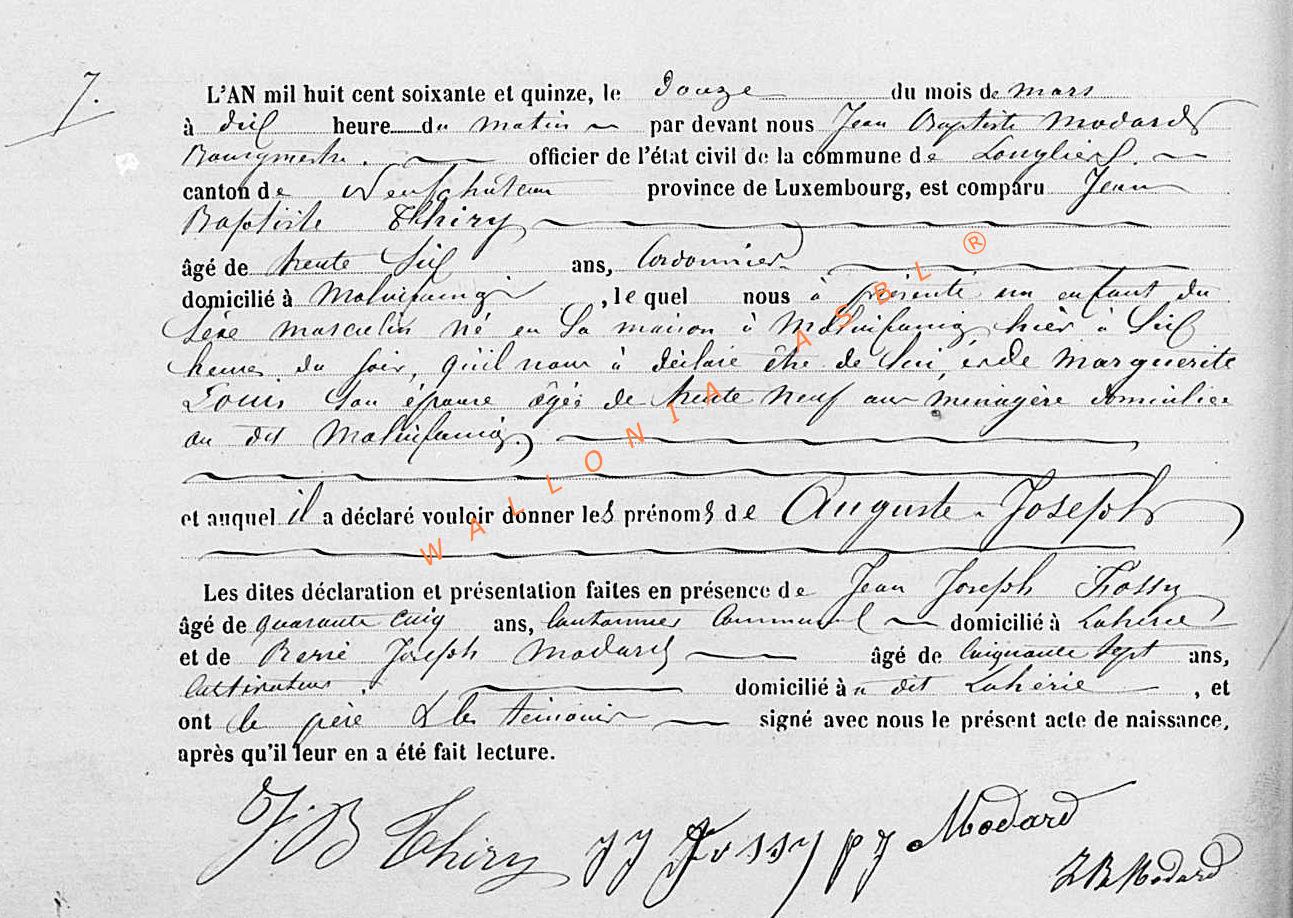 7.
L'AN mil huit cent soixante et quinze, le douze du mois de mars
à dix heure du matin par devant nous Jean Baptiste Modard
Bourgmestre. officier de l'état civil de la commune de Longlier.
canton de Neufchâteau province de Luxembourg, est comparu Jean
Baptiste Thiry
âgé de trente six ans, Cordonnier
domicilié à Molinfaing, le quel nous à présenté un enfant du
Sexe masculin né en Sa maison à Molinfaing hier à Six
heures du soir, qu'il nous à déclaré être de lui, et de Marguerite
Louis Son épouse âgée de trente neuf ans ménagère domiciliée
au dit Molinfaing,
et auquel il a déclaré vouloir donner les prénoms de Auguste - Joseph
Les dites déclaration et présentation faites en présence de Jean Joseph Fossy
âgé de quarante cinq ans, Cantonnier Communal domicilié à Lahérie
et de Joseph Modard âgé de Cinquante Sept ans,
Cultivateur. domicilié à dit Lahérie, et
ont le père & les témoins signé avec nous le présent acte de naissance,
après qu'il leur en a été fait lecture.
J. B Thiry JJ Fossy pJ Modard
J B Modard
WALLONIA ASBL ®